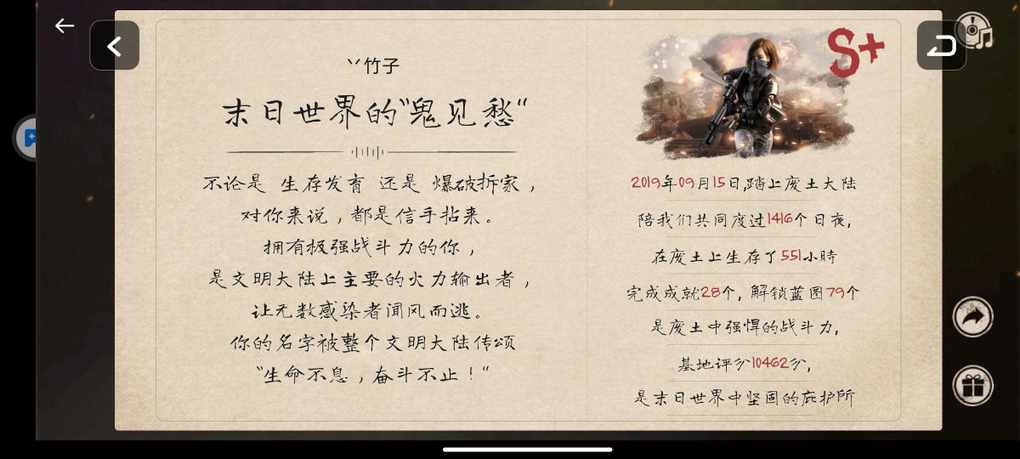 丷竹子
末日世界的“鬼见愁“
不论是 生存发育 还是 爆破拆家，
对你来说，都是信手拈来。
拥有极强战斗力的你，
是文明大陆上主要的火力输出者，
让无数感染者闻风而逃。
你的名字被整个文明大陆传颂
“生命不息，奋斗不止！“
S+
2019年09月15日,踏上废土大陆
陪我们共同度过1416个日夜,
在废土上生存了551小時
完成成就28个, 解锁蓝图79个
是废土中强悍的战斗力,
基地评分10462分,
是末日世界中坚固的庇护所